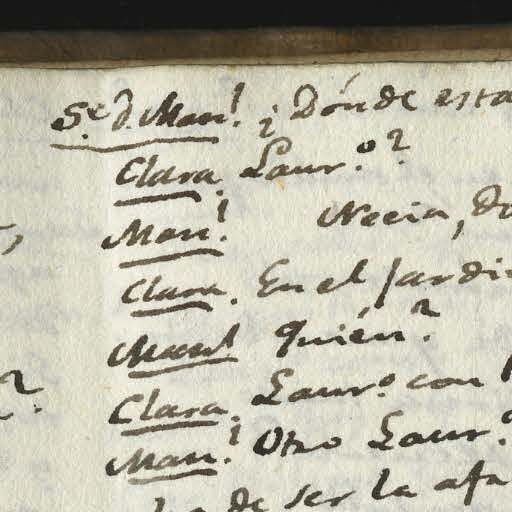 Se. d. Manl. ¿Dónde esta
Clara. Laur.o?
Manl. Necia, do
Clara. En el Jardin
Manl Quién?
Clara. Laur.o con
Manl. Otro Laur.o
ha de ser la afa